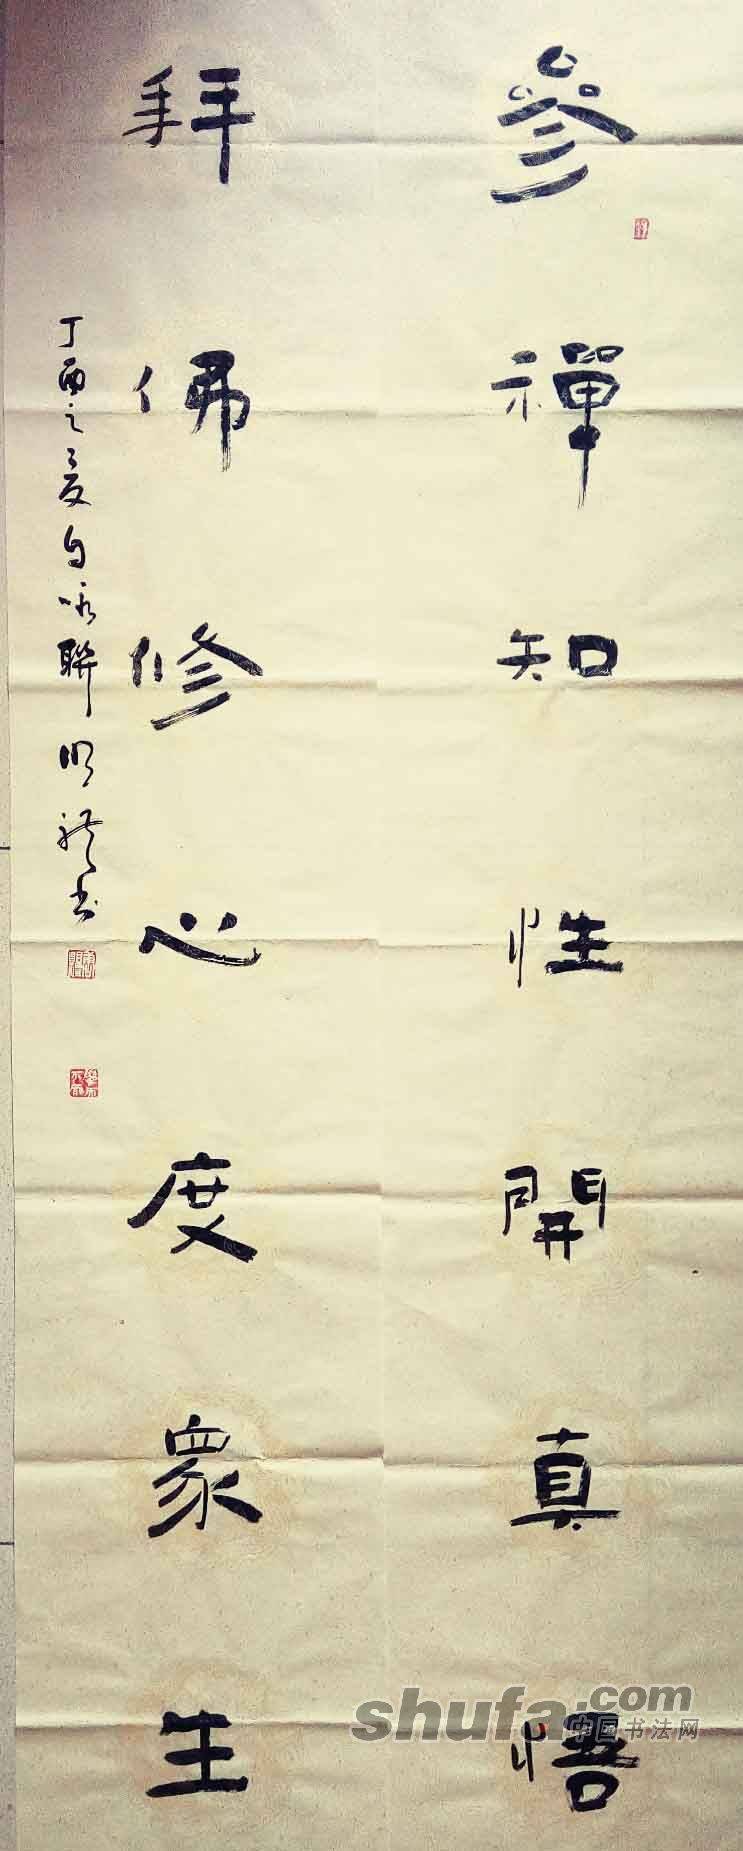 參禪知性開真悟
拜佛修心度眾生
丁酉之夏自咏聯明禮书
shufa.com
中国书法网